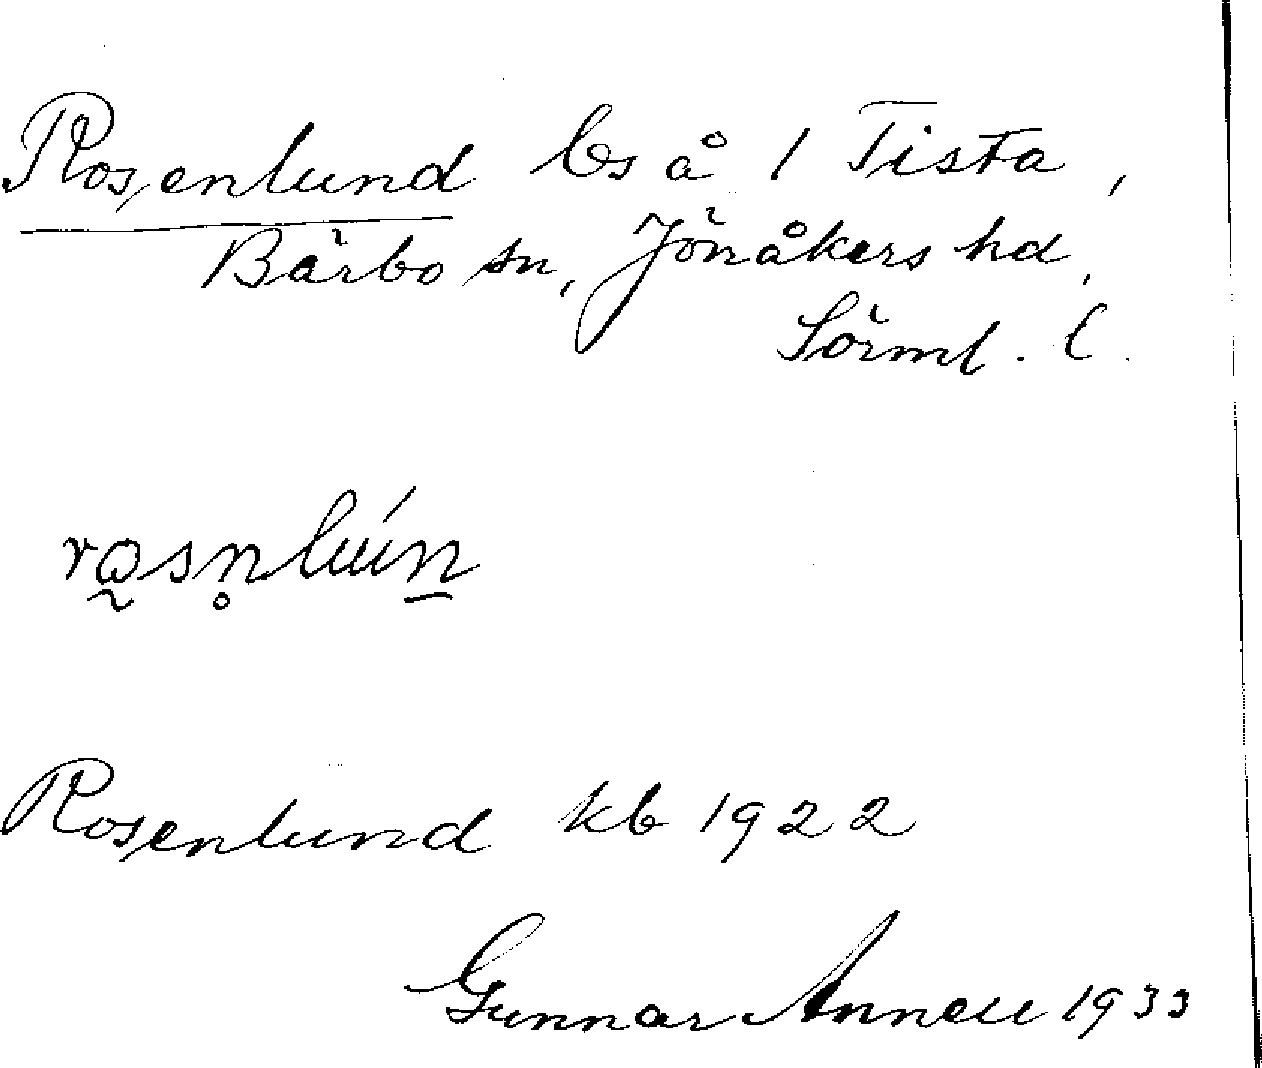 Rosenlund ls å 1 Tista,
Bärbo sn, Jönåkers hd,
Sörml. l.
Rosenlund kb 1922
Gunnar Annell 1933